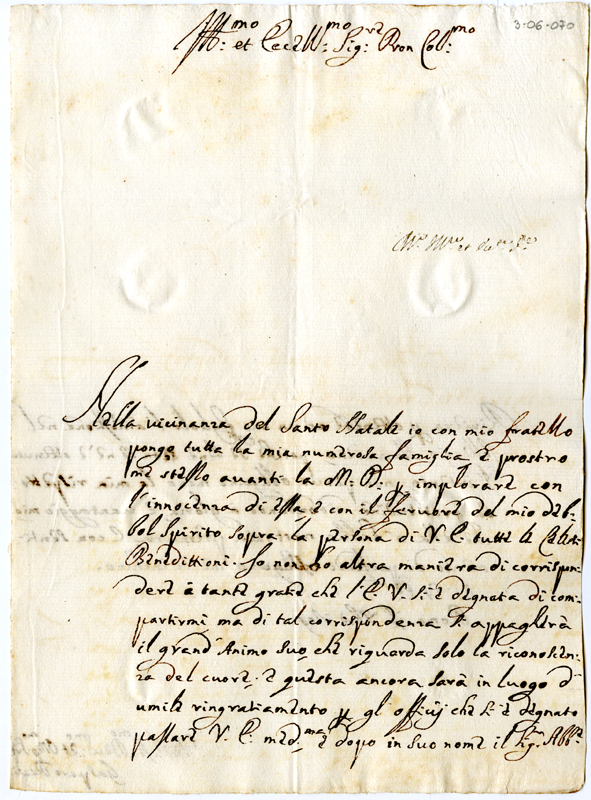 3-06-070
Ill:mo et Ecc:mo Sig:re Pron Col:mo
Nella vicinanza del Santo Natale io con mio fratello
pongo tutta la mia numerosa famiglia e prostro
me stesso avanti la M. D. p implorare con
l'innocenza di essa e con il fervore del mio deb:
bol Spirito sopra la persona di V. E. tutte le Celesti
Benedittioni. Io non ho altra maniera di corrispon:
dere à tante gratie che l'E. V. si è degnata di com:
partirmi ma di tal corrispondenza si appagherà
il grand' Animo suo, che riguarda solo la riconoscen:
za del cuore, e questa ancora sarà in luogo d'
umile ringratiamento p gl'offitij che si è degnato
passare V. E. med:ma e dopo in suo nome il Sig:r Abb:e